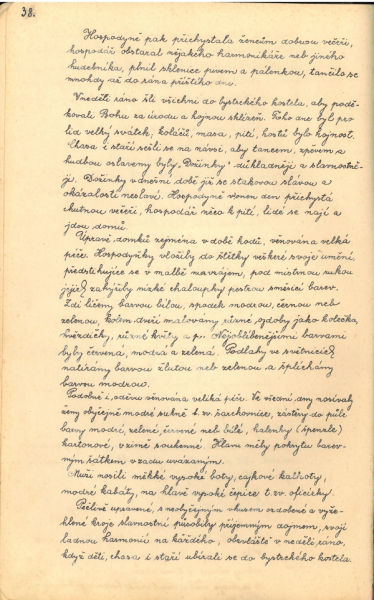 38.
Hospodyně pak přichystala žencům dobrou večeři,
hospodář obstaral nějakého harmonikáře neb jiného
hudebníka, plnil sklenice pivem a pálenkou, tančilo se
mnohdy až do rána příštího dne.
V neděli ráno šli všichni do bysteckého kostela, aby podě-
kovali Bohu za úrodu a hojnou sklizeň. Toho dne byl pro
lid velký svátek, koláčů, masa, pití, hostů bylo hojnost.
Chasa i staří sešli se na návsi, aby tancem, zpěvem a
hudbou oslaveny byly „Dožinky" důkladněji a slavnostně-
ji. Dožinky v dnešní době již se s takovou slávou a
okázalostí neslaví. Hospodyně v onen den přichystá
chutnou večeři, hospodář něco k pití, lidé se nají a
jdou domů.
Úpravě domků zejména v době hodů, věnována velká
péče. Hospodyňky vložily do štětky veškeré svoje umění,
předstihujíce se v malbě navzájem, pod mistrnou rukou
jejich zahýřily nízké chaloupky pestrou směsicí barev.
Zdi líčeny barvou bílou, spodek modrou, černou neb
zelenou, kolem dveří malovány různé ozdoby jako kolečka,
hvězdičky, různé kvítky a p. Nejoblíbenějšími barvami
byly červená, modrá a zelená. Podlahy ve světnicích
natírány barvou žlutou neb zelenou a šplíchány
barvou modrou.
Podobně i oděvu věnována veliká péče. Ve všední dny nosívaly
ženy obyčejně modré sukně t. zv. šarchovice, zástěry do půle
barvy modré, zelené, červené neb bílé, halenky (špenzle)
kartonové, v zimě soukenné. Hlavu měly pokrytu barev-
ným šátkem vzadu uvázaným.
Muži nosili měkké vysoké boty, cajkové kalhoty,
modré kabáty, na hlavě vysoké čepice t. zv. oficírky.
Pečlivě upravené, s neobyčejným vkusem ozdobené a vyže-
hlené kroje slavnostní působily příjemným dojmem, svojí
ladnou harmonií na každého, obzvláště v neděli ráno,
když děti, chasa i staří ubírali se do bysteckého kostela.